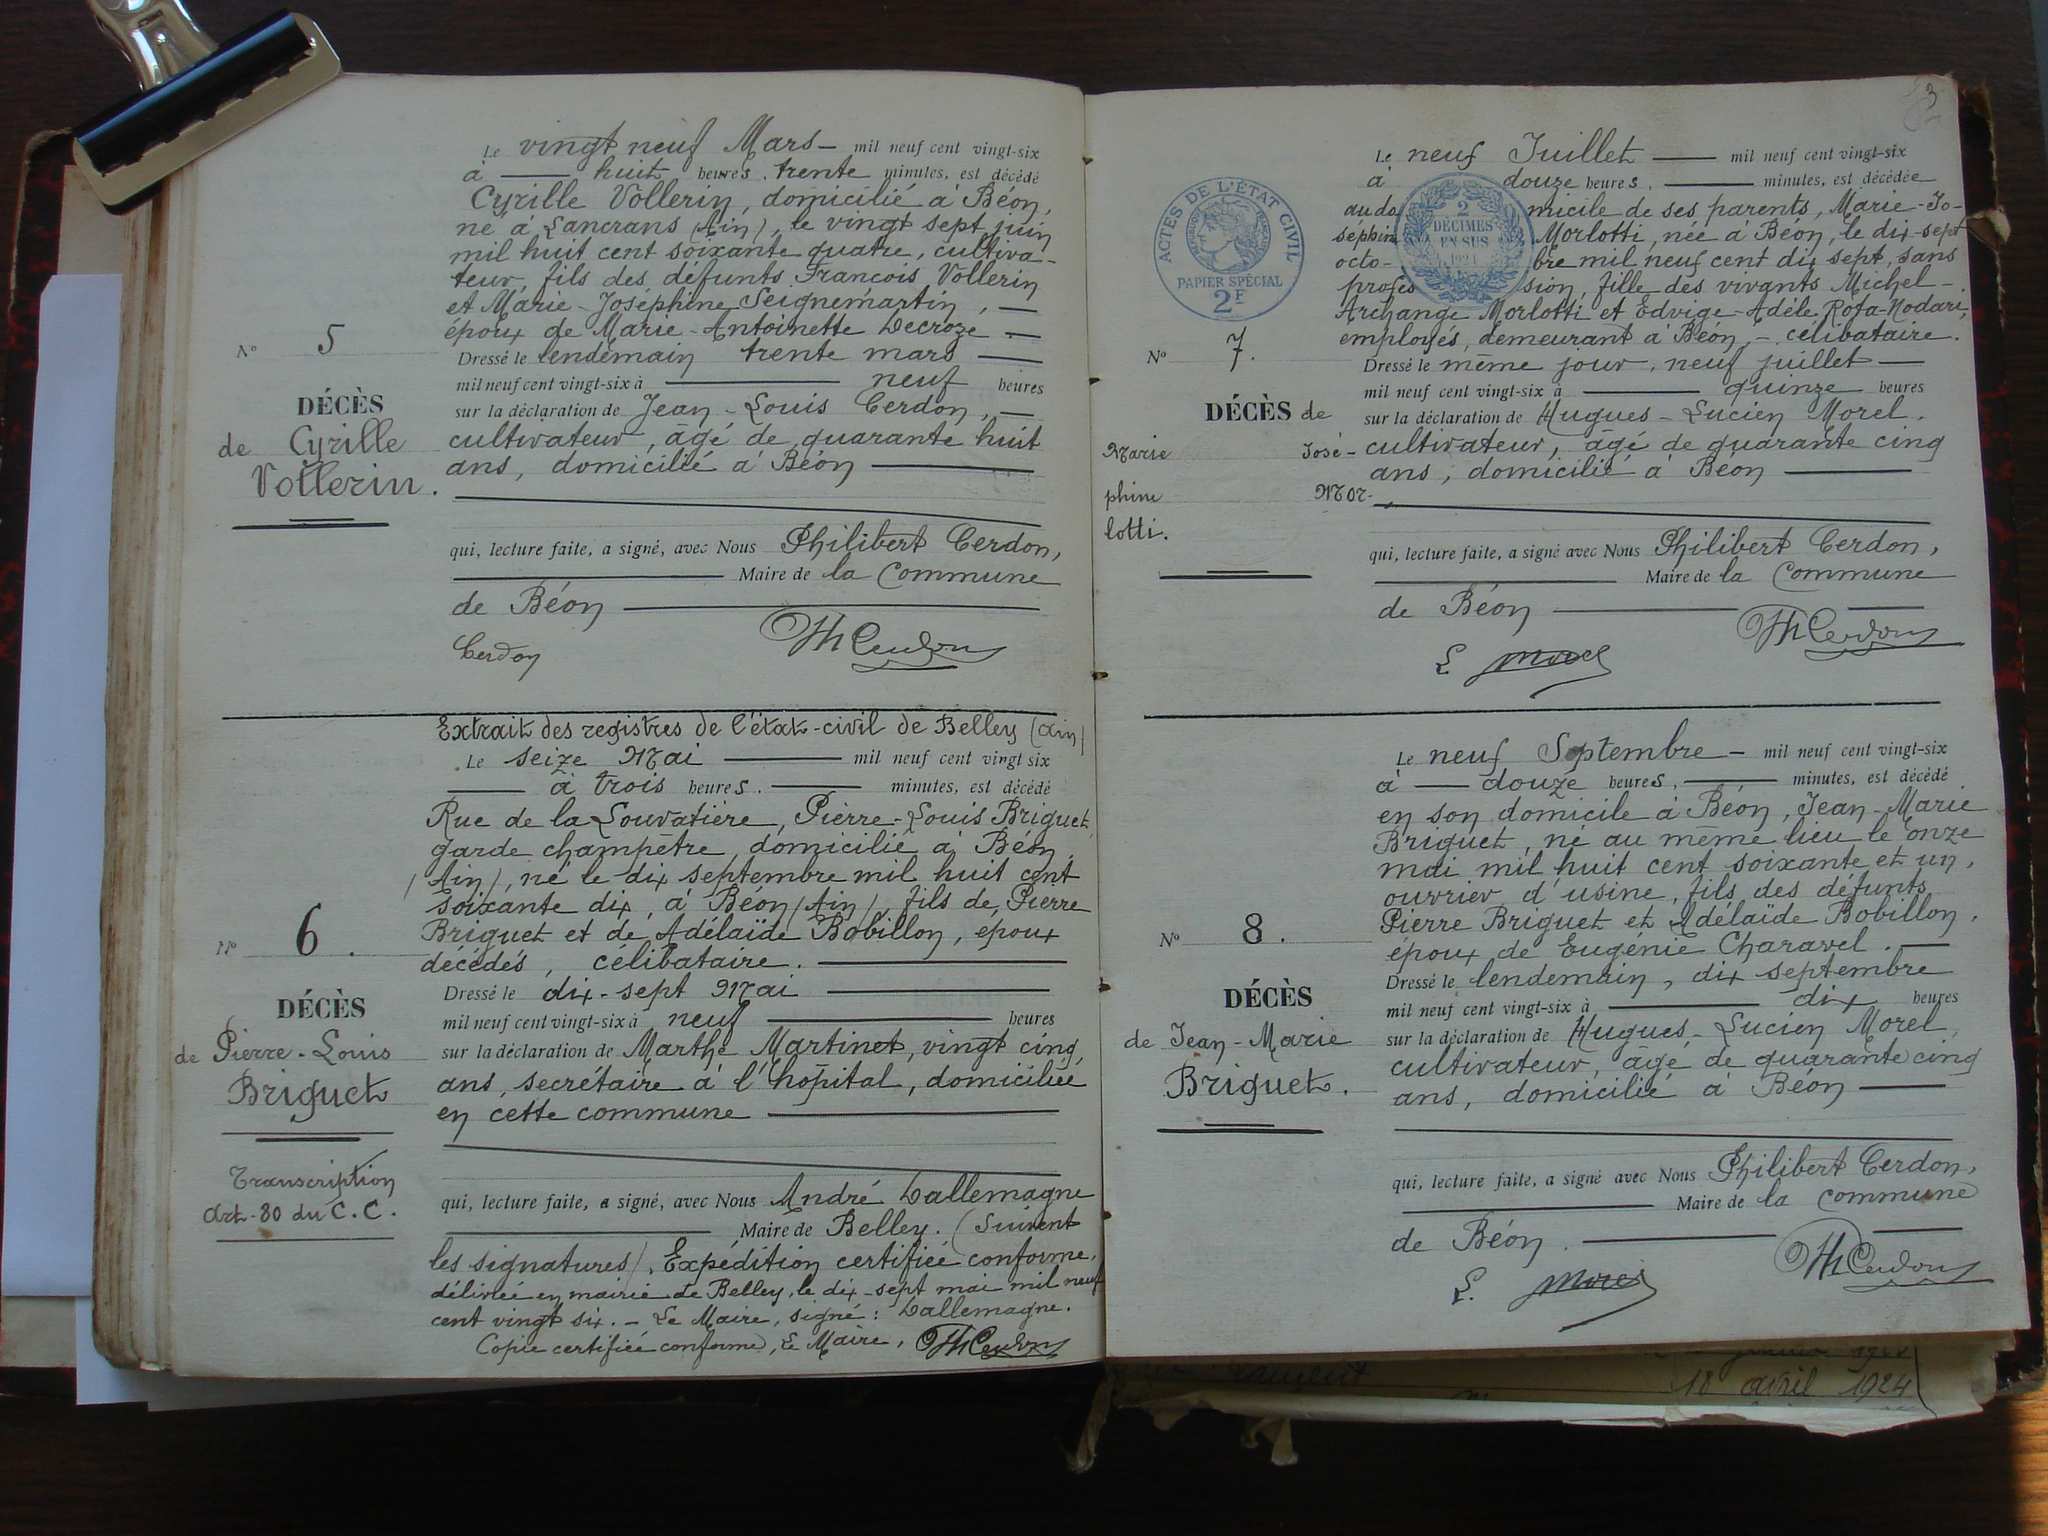 Le vingt neuf Mars — mil neuf cent vingt-six
à — huit heures, trente minutes, est décédé
Cyrille Vollerin, domicilié à Béon,
né à Lancrans (Ain), le vingt sept juin
mil huit cent soixante quatre, cultiva-
teur, fils des défunts François Vollerin
et Marie-Joséphine Seignemartin, —
époux de Marie-Antoinette Decroze —
Dressé le lendemain trente mars —
mil neuf cent vingt-six à — neuf heures
sur la déclaration de Jean-Louis Cerdon, —
cultivateur, âgé de quarante huit
ans, domicilié à Béon —
qui, lecture faite, a signé, avec Nous Philibert Cerdon,
— Maire de la Commune
de Béon —
Cerdon Ph Cerdon
N° 5
DÉCÈS
de Cyrille
Vollerin.
Extrait des registres de l'état-civil de Belley (Ain)
Le seize Mai — mil neuf cent vingt six
— à trois heures. — minutes, est décédé
Rue de la Louvatière, Pierre-Louis Briguet,
garde champêtre, domicilié à Béon,
(Ain), né le dix septembre mil huit cent
soixante dix, à Béon (Ain), fils de, Pierre
Briguet et de Adélaïde Bobillon, époux
décédés, célibataire. —
Dressé le dix-sept Mai —
mil neuf cent vingt-six à neuf — heures
sur la déclaration de Marthe Martinet, vingt cinq
ans, secrétaire à l'hôpital, domiciliée
en cette commune —
qui, lecture faite, a signé, avec Nous André Dallemagne
— Maire de Belley. (Suivent
les signatures). Expédition certifiée conforme,
délivrée en mairie de Belley, le dix-sept mai mil neuf
cent vingt six. — Le Maire, signé : Dallemagne.
Copie certifiée conforme, Le Maire, Ph Cerdon
N° 6.
DÉCÈS
de Pierre-Louis
Briguet
Transcription
Art-80 du C.C.
3
Le neuf Juillet — mil neuf cent vingt-six
à douze heures, — minutes, est décédée
au domicile de ses parents, Marie-Jo-
sephine Morlotti, née à Béon, le dix-sept
octo-bre mil neuf cent dix sept, sans
profession, fille des vivants Michel-
Archange Morlotti et Edvige-Adèle Rota-Nodari,
employés, demeurant à Béon, — célibataire.
Dressé le même jour, neuf juillet —
mil neuf cent vingt-six à — quinze heures
sur la déclaration de Hugues-Lucien Morel,
cultivateur, âgé de quarante cinq
ans, domicilié à Béon —
qui, lecture faite, a signé avec Nous Philibert Cerdon,
— Maire de la Commune
de Béon —
L. Morel Ph Cerdon
ACTES DE L'ÉTAT CIVIL
PAPIER SPÉCIAL
2F
2
DÉCIMES
EN SUS
1921
N° 7.
DÉCÈS de
Marie José-
phine Mor-
lotti.
Le neuf Septembre — mil neuf cent vingt-six
à — douze heures, — minutes, est décédé
en son domicile à Béon, Jean-Marie
Briguet, né au même lieu le onze
mai mil huit cent soixante et un,
ouvrier d'usine, fils des défunts
Pierre Briguet et Adélaïde Bobillon,
époux de Eugénie Charavel. —
Dressé le lendemain, dix septembre
mil neuf cent vingt-six à — dix heures
sur la déclaration de Hugues-Lucien Morel,
cultivateur, âgé de quarante cinq
ans, domicilié à Béon —
qui, lecture faite, a signé avec Nous Philibert Cerdon,
— Maire de la commune
de Béon. —
L. Morel Ph Cerdon
N° 8.
DÉCÈS
de Jean-Marie
Briguet.
18 avril 1924